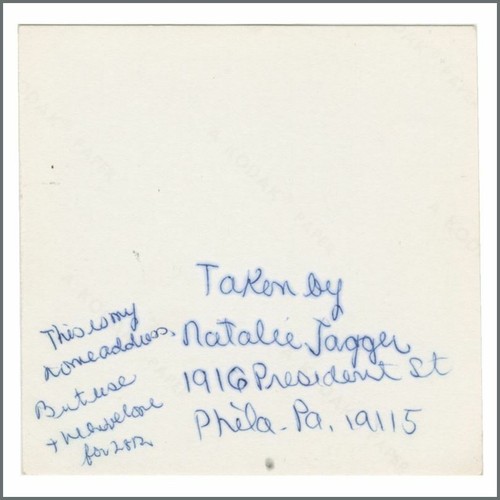 Taken by
Natalie Jagger
1916 President St
Phila. Pa. 19115
This is my
home address
But use
for
A KODAK PAPER